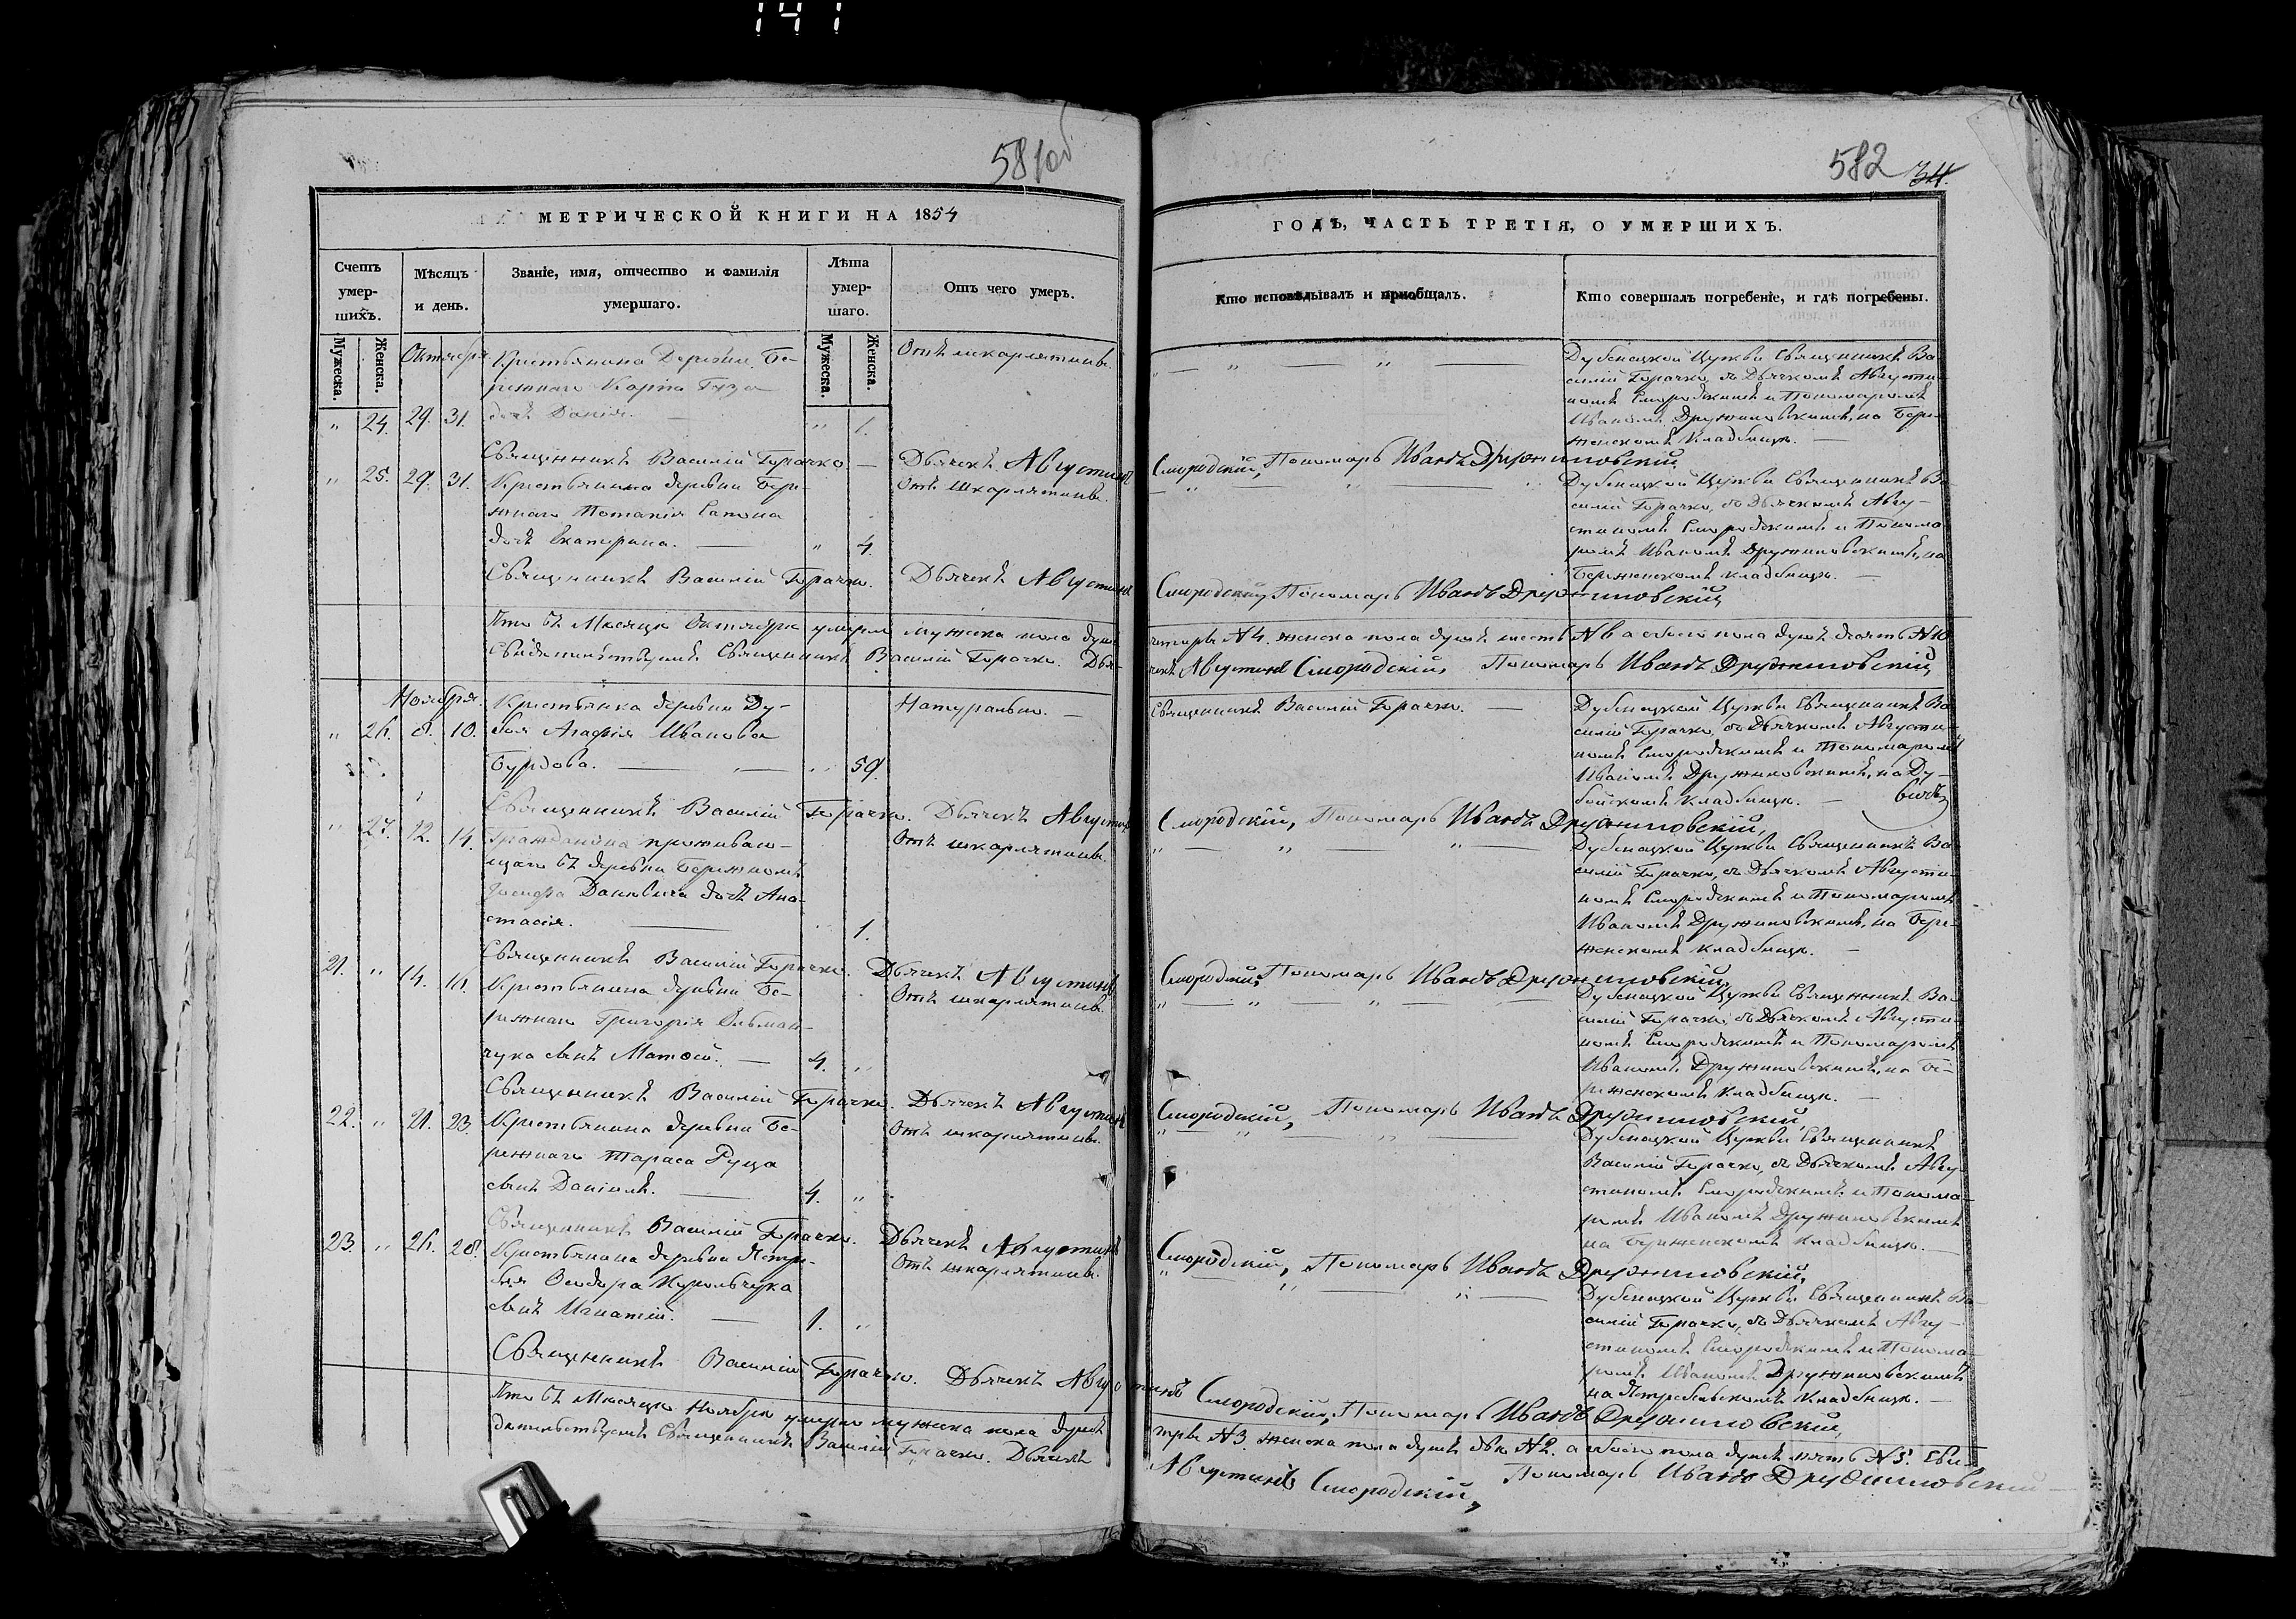 141
581об
582 34.
МЕТРИЧЕСКОЙ КНИГИ НА 1854
ГОДЪ, ЧАСТЬ ТРЕТІЯ, О УМЕРШИХЪ.
Счетъ умер-шихъ.
Мужеска. Женска.
Мѣсяцъ и день.
Званіе, имя, отчество и фамилія умершаго.
Лѣта умер-шаго.
Мужеска. Женска.
Отъ чего умеръ.
Кто исповѣдывалъ и приобщалъ.
Кто совершалъ погребеніе, и гдѣ погребены.
Октября
Крестьянина Деревни Бе-
режнаго Карпа Гуза
" 24. 29. 31. дочь " 1.
Отъ шкарлятины.
Дубенецкой Церкви Священникъ Ва-
силій Горачко, съ Дьячкомъ Августи-
номъ Смородскимъ и Пономаремъ
Иваномъ Дружиловскимъ, на Бере-
женскомъ кладбищѣ. —
Священникъ Василій Горачко. — Дьячекъ Августинъ Смородскій, Пономарь Иванъ Дружиловскій
" 25. 29. 31. Крестьянина деревни Бере-
жнаго Сапона
дочь Екатерина. — " 4.
Отъ шкарлятины.
Дубенецкой Церкви Священникъ Ва-
силій Горачко, съ Дьячкомъ Авгу-
стиномъ Смородскимъ и Понома-
ремъ Иваномъ Дружиловскимъ, на
Береженскомъ кладбищѣ. —
Священникъ Василій Горачко. Дьячекъ Августинъ Смородскій, Пономарь Иванъ Дружиловскій
Что въ Мѣсяцѣ Октябрѣ умерло мужеска пола душъ четыре N 4. женска пола душъ шесть N 6 а обоего пола душъ десять N 10
Свидѣтельствуемъ Священникъ Василій Горачко. Дья-чекъ Августинъ Смородскій, Пономарь Иванъ Дружиловскій,
Ноября.
Крестьянка деревни Ду-
" 26. 8. 10. боя Агафія Иванова
Бурдова. — " 59.
Натурально. —
Священникъ Василій Горачко. —
Дубенецкой Церкви Священникъ Ва-
силій Горачко, съ Дьячкомъ Августи-
номъ Смородскимъ и Пономаремъ
Иваномъ Дружиловскимъ, на Ду-
бойскомъ кладбищѣ. —
Священникъ Василій Горачко. Дьячекъ Августинъ Смородскій, Пономарь Иванъ Дружиловскій,
" 27. 12. 14. Гражданина проживаю-
щаго въ деревни Бережномъ
Данкевича дочь Ана-
стасія. — " 1.
Отъ шкарлятины.
Дубенецкой Церкви Священникъ Ва-
силій Горачко, съ Дьячкомъ Августи-
номъ Смородскимъ и Пономаремъ
Иваномъ Дружиловскимъ, на Бере-
женскомъ кладбищѣ. —
Священникъ Василій Горачко. Дьячекъ Августинъ Смородскій, Пономарь Иванъ Дружиловскій,
21. " 14. 16. Крестьянина деревни Бе-
режнаго Григорія
сынъ Матѳей. — 4. "
Отъ шкарлятины.
Дубенецкой Церкви Священникъ Ва-
силій Горачко, съ Дьячкомъ Августи-
номъ Смородскимъ и Пономаремъ
Иваномъ Дружиловскимъ, на Бе-
реженскомъ кладбищѣ. —
Священникъ Василій Горачко. Дьячекъ Августинъ Смородскій, Пономарь Иванъ Дружиловскій,
22. " 21. 23. Крестьянина деревни Бе-
режнаго Тараса
сынъ Даніилъ. — 4. "
Отъ шкарлятины.
Дубенецкой Церкви Священникъ
Василій Горачко, съ Дьячкомъ Авгу-
стиномъ Смородскимъ и Понома-
ремъ Иваномъ Дружиловскимъ
на Береженскомъ кладбищѣ. —
Священникъ Василій Горачко. Дьячекъ Августинъ Смородскій, Пономарь Иванъ Дружиловскій,
23. " 26. 28. Крестьянина деревни Ястре-
бля Ѳеодора
сынъ Игнатій. — 1. "
Отъ шкарлятины.
Дубенецкой Церкви Священникъ Ва-
силій Горачко, съ Дьячкомъ Авгу-
стиномъ Смородскимъ и Понома-
ремъ Иваномъ Дружиловскимъ
на Ястребельскомъ кладбищѣ. —
Священникъ Василій Горачко. Дьячекъ Августинъ Смородскій, Пономарь Иванъ Дружиловскій,
Что въ Мѣсяцѣ Ноябрѣ умерло мужеска пола душъ три N 3. женска пола душъ двѣ N 2. а обоего пола душъ пять N 5. Сви-
дѣтельствуемъ Священникъ Василій Горачко. Дьячекъ Августинъ Смородскій, Пономарь Иванъ Дружиловскій